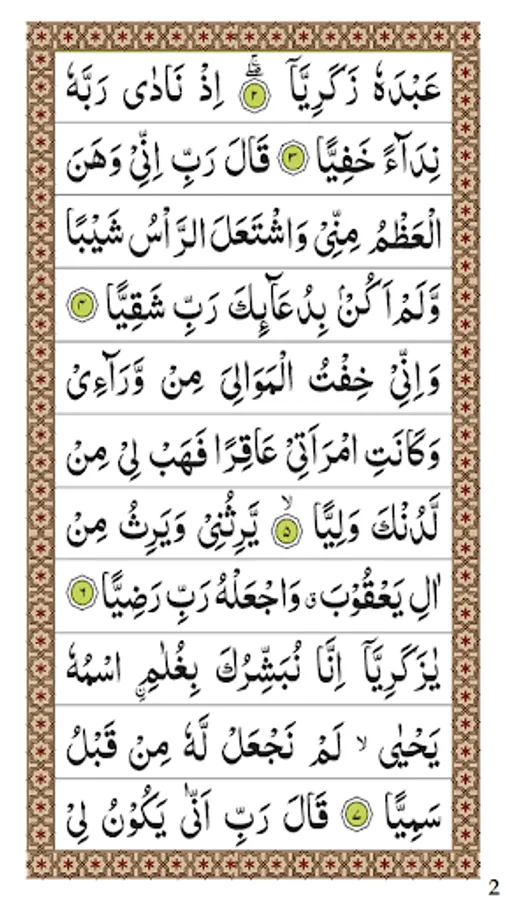 عَبْدَهٗ زَكَرِيَّاۤ ۖۚ ۝۲ اِذْ نَادٰى رَبَّهٗ
نِدَآءً خَفِيًّا ۝۳ قَالَ رَبِّ اِنِّىْ وَهَنَ
الْعَظْمُ مِنِّىْ وَاشْتَعَلَ الرَّاْسُ شَيْبًا
وَّلَمْ اَكُنْۢ بِدُعَآئِكَ رَبِّ شَقِيًّا ۝۴
وَاِنِّىْ خِفْتُ الْمَوَالِىَ مِنْ وَّرَآءِىْ
وَكَانَتِ امْرَاَتِىْ عَاقِرًا فَهَبْ لِىْ مِنْ
لَّدُنْكَ وَلِيًّا ۙ ۝۵ يَّرِثُنِىْ وَيَرِثُ مِنْ
اٰلِ يَعْقُوْبَ ۖ وَاجْعَلْهُ رَبِّ رَضِيًّا ۝۶
يٰزَكَرِيَّاۤ اِنَّا نُبَشِّرُكَ بِغُلٰمِ ۨ اسْمُهٗ
يَحْيٰى ۙ لَمْ نَجْعَلْ لَّهٗ مِنْ قَبْلُ
سَمِيًّا ۝۷ قَالَ رَبِّ اَنّٰى يَكُوْنُ لِىْ
2